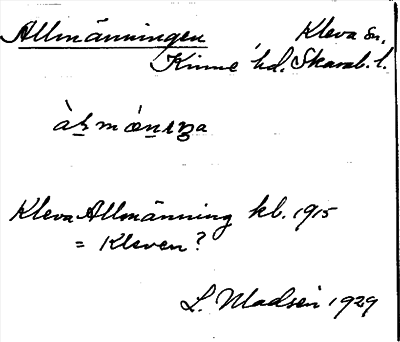 Allmänningen Kleva sn.
Kinne hd. Skarab. l.
Kleva Allmänning kl. 1915
= Kleven?
L. Madsén 1929